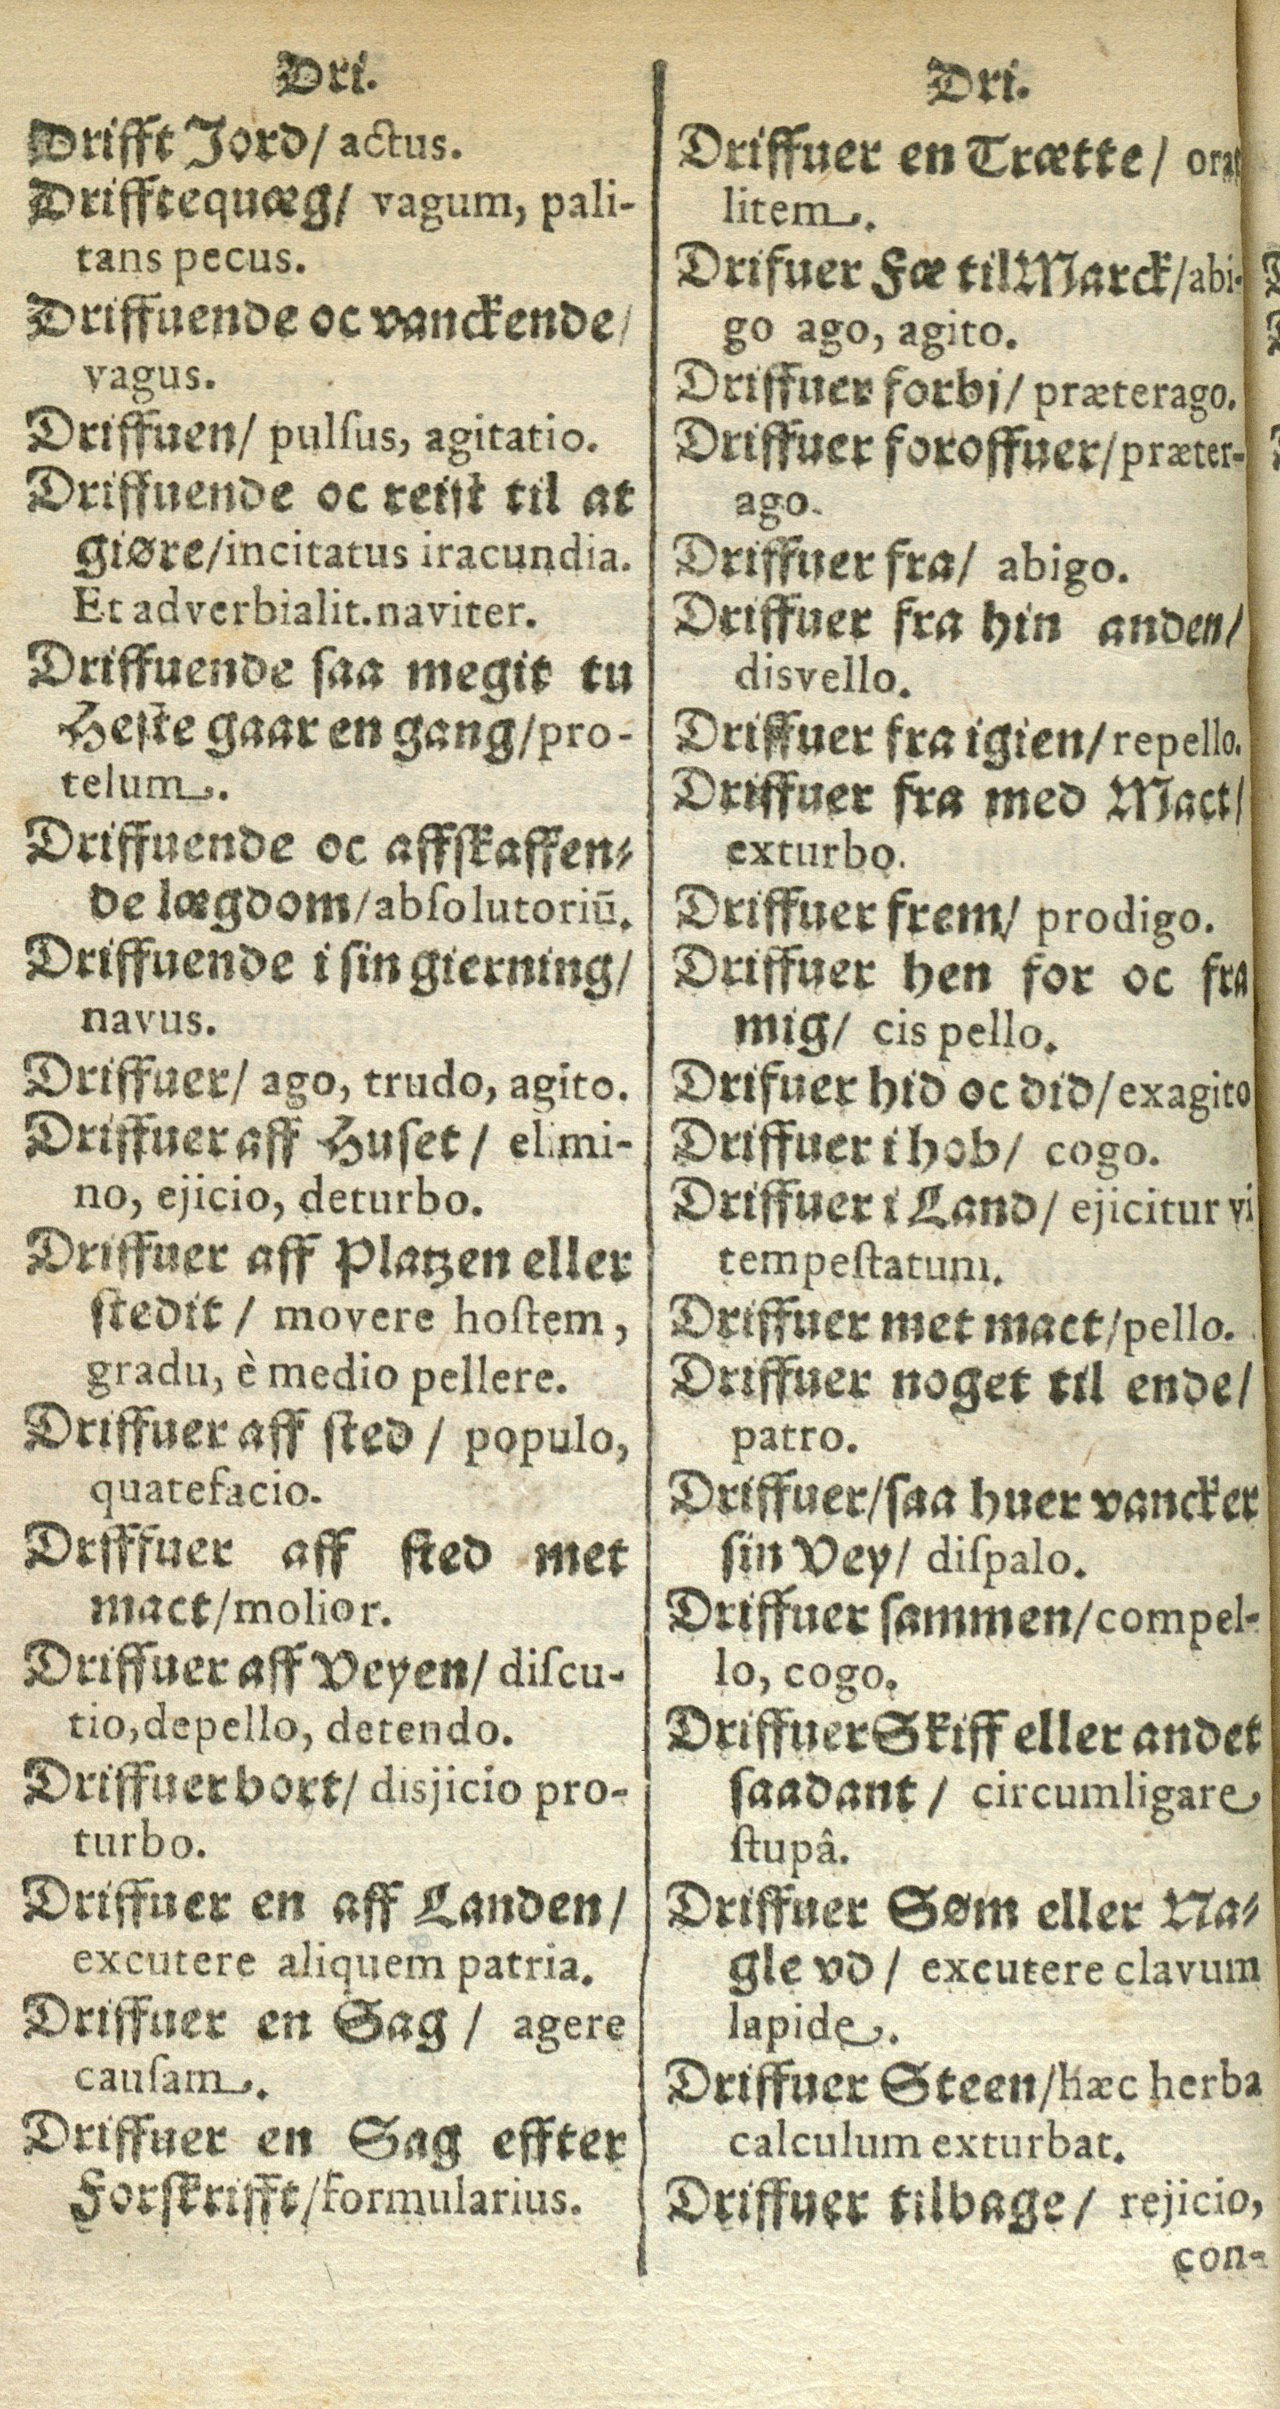 Dri.
Drifft Jord/ actus.
Drifftequæg/ vagum, pali-
tans pecus.
Driffuende oc vanckende/
vagus.
Driffuen/ pulſus, agitatio.
Driffuende oc reiſt til at
giøre/incitatus iracundia.
Et adverbialit. naviter.
Driffuende ſaa megit tu
Heſte gaar en gang/pro-
telum.
Driffuende oc affſkaffen-
de lægdom/abſolutoriū.
Driffuende i ſin gierning/
navus.
Driffuer/ ago, trudo, agito.
Driffuer aff Huſet/ elimi-
no, ejicio, deturbo.
Driffuer aff Platzen eller
ſtedit/ movere hoſtem,
gradu, è medio pellere.
Driffuer aff ſted/ populo,
quatefacio.
Driffuer aff ſted met
mact/molior.
Driffuer aff Veyen/ diſcu-
tio, depello, detendo.
Driffuer bort/ disjicio pro-
turbo.
Driffuer en aff Landen/
excutere aliquem patria.
Driffuer en Sag/ agere
cauſam.
Driffuer en Sag effter
Forſkrifft/formularius.
Dri.
Driffuer en Trætte/
litem.
Drifuer Fæ til Marck/abi-
go ago, agito.
Driffuer forbi/ præterago.
Driffuer foroffuer/præter-
ago.
Driffuer fra/ abigo.
Driffuer fra hin anden/
disvello.
Driffuer fra igien/repello.
Driffuer fra med Mact/
exturbo.
Driffuer frem/ prodigo.
Driffuer hen for oc fra
mig/ cis pello.
Drifuer hid oc did/exagito
Driffuer i hob/ cogo.
Driffuer i Land/ ejicitur vi
tempeſtatum.
Driffuer met mact/pello.
Driffuer noget til ende/
patro.
Driffuer/ſaa huer vancker
ſin Vey/ diſpalo.
Driffuer ſammen/compel-
lo, cogo.
Driffuer Skiff eller andet
ſaadant/ circumligare
ſtupâ.
Driffuer Søm eller Na-
gle vd/ excutere clavum
lapide.
Driffuer Steen/hæc herba
calculum exturbat.
Driffuer tilbage/ rejicio,
con-